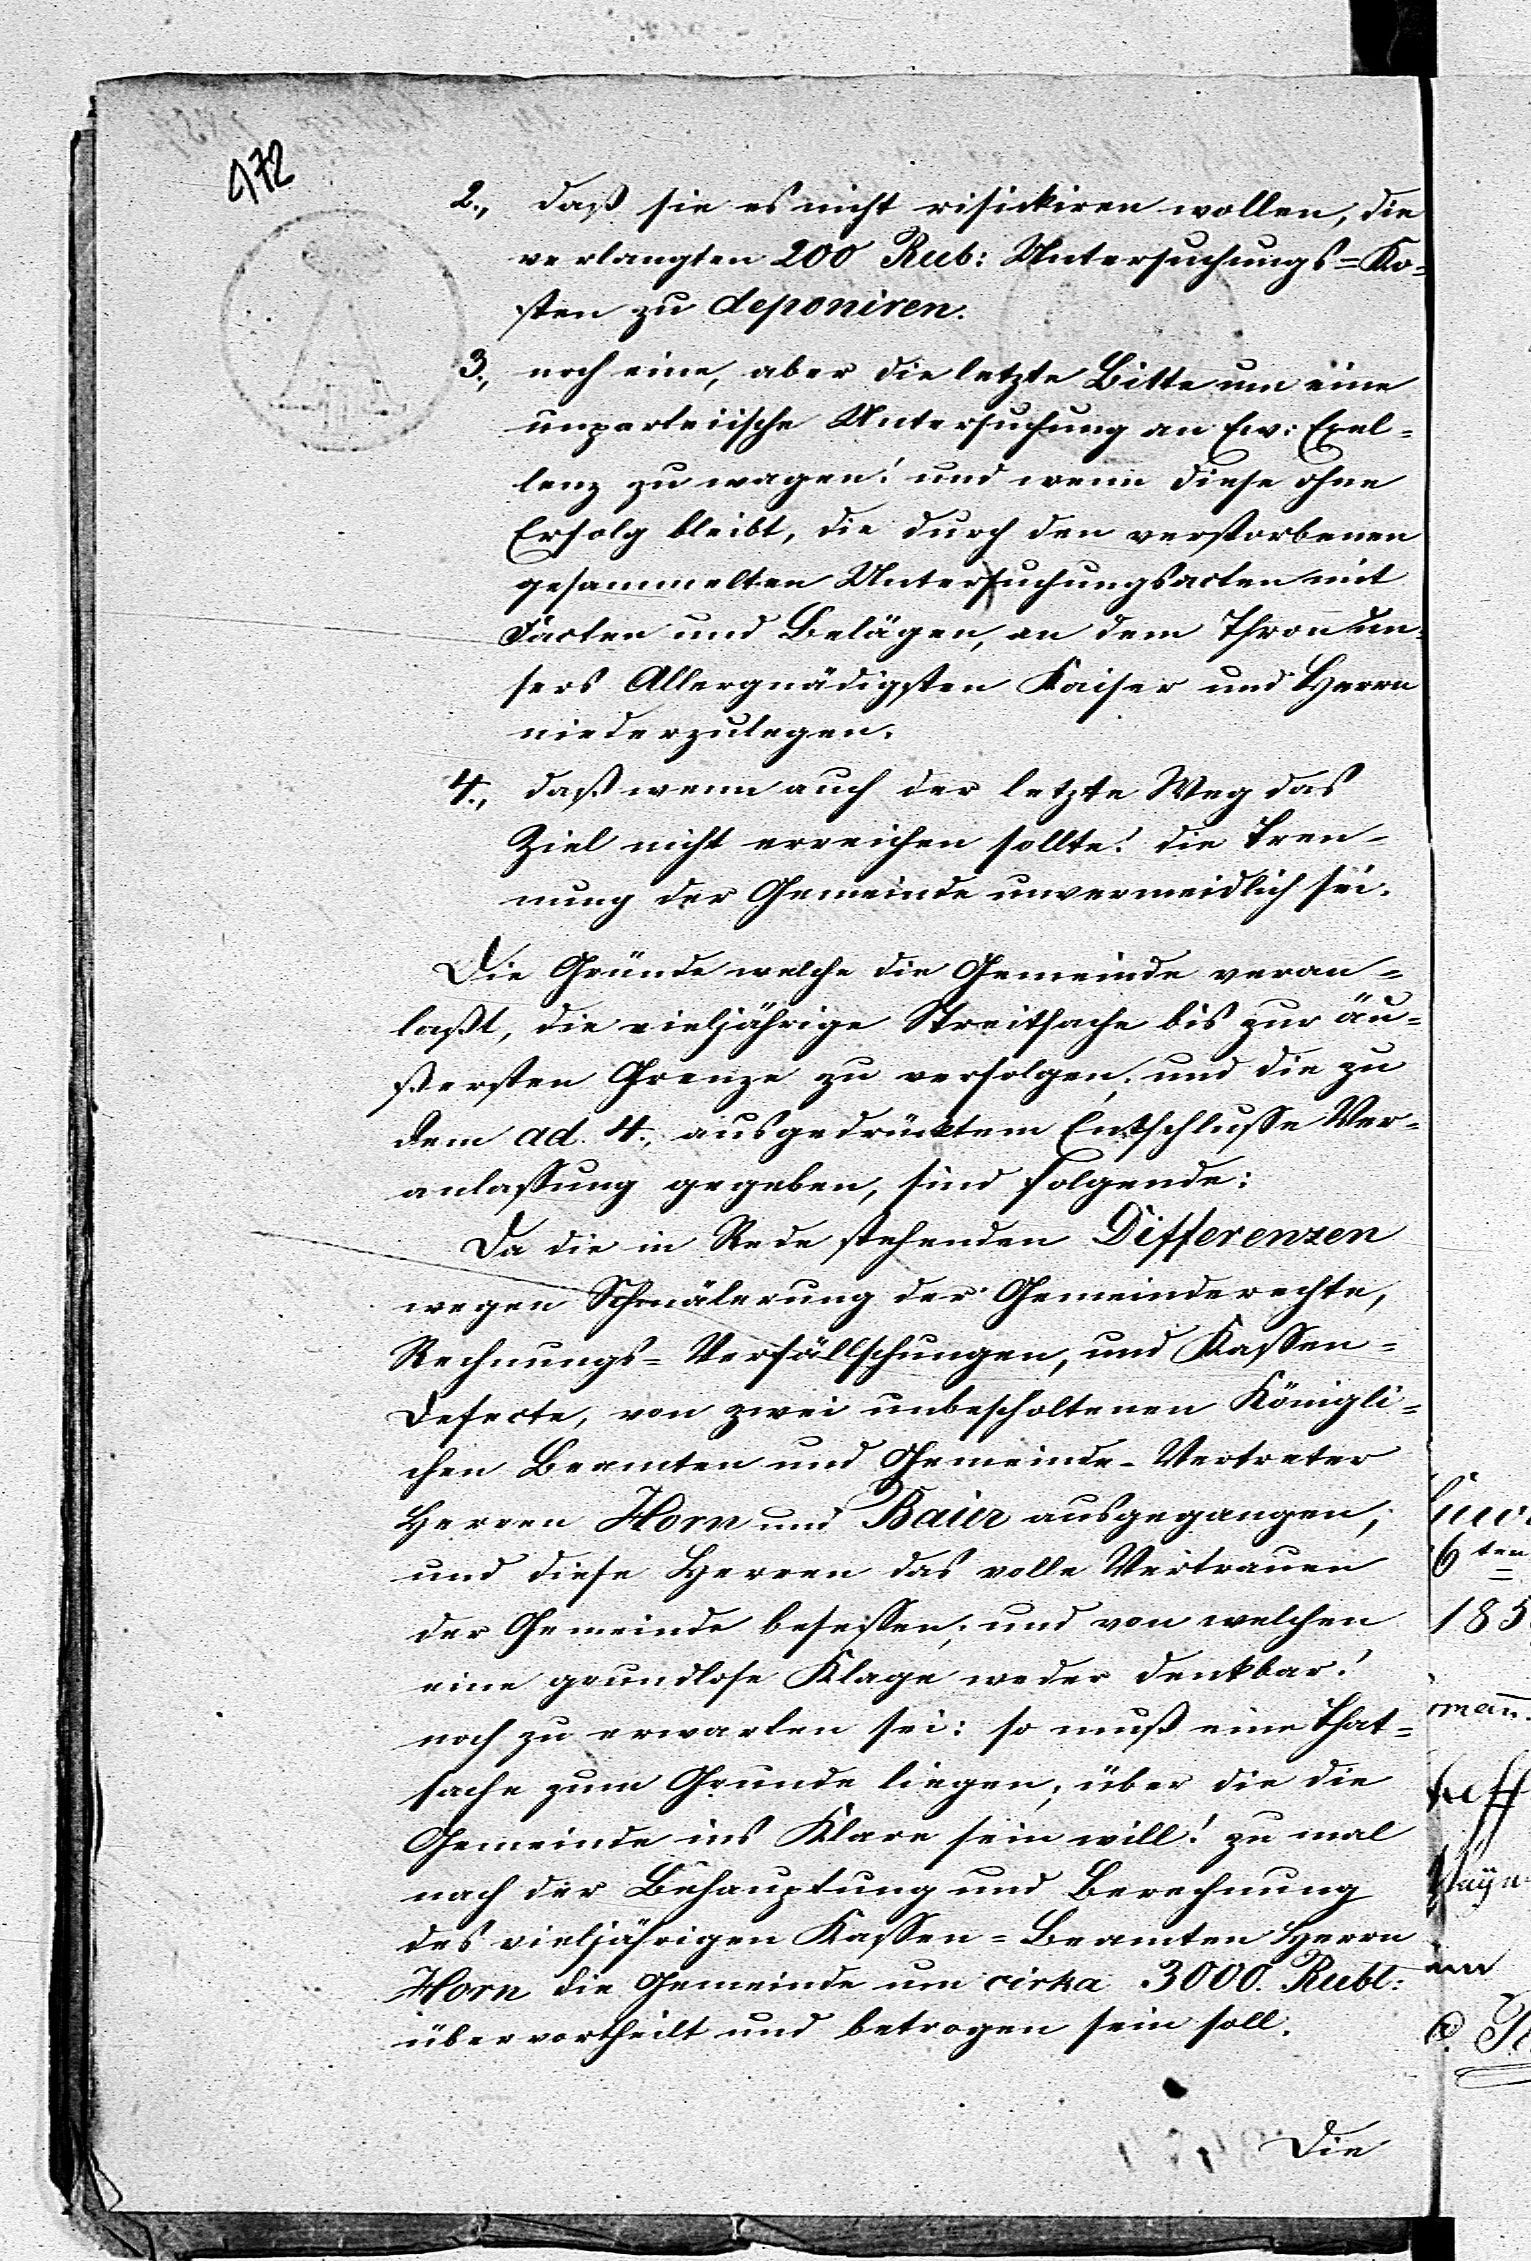 472
2., daß sie es nicht risickiren wollen, die
verlangten 200 Rub: Untersuchungs=Ko=
sten zu deponiren.
3., noch eine, aber die letzte Bitte um eine
unparteiische Untersuchung an Ew: Exel=
lenz zu wagen! und wenn diese ohne
Erfolg bleibt, die durch den verstorbenen
gesammelten Untersuchungsacten mit
Facten und Belägen, an dem Thron un=
sers Allergnädigsten Kaiser und Herrn
niederzulegen.
4., daß wenn auch der letzte Weg das
Ziel nicht erreichen sollte! die Tren=
nung der Gemeinde unvermeidlich sei.
Die Gründe welche die Gemeinde veran=
laßt, die vieljährige Streitsache bis zur äu=
ßersten Grenze zu verfolgen, und die zu
dem ad. 4., ausgedrücktem Entschlusse Ver=
anlassung gegeben, sind folgende:
Da die in Rede stehenden Differenzen
wegen Schmälerung der Gemeinderechte,
Rechnungs=Verfällschungen, und Kassen=
Defecte, von zwei unbescholtenen Königli=
chen Beamten und Gemeinde-Vertreter
Herren Horn und Baier ausgegangen;
und diese Herren das volle Vertrauen
der Gemeinde besessen; und von welchen
eine grundlose Klage weder denkbar!
noch zu erwarten sei: so muß eine That=
sache zum Grunde liegen; über die die
Gemeinde ins Klare sein will! zu mal
nach der Behauptung und Berechnung
des vieljährigen Kassen=Beamten Herrn
Horn die Gemeinde um cirka 3000. Rubl:
übervortheilt und betrogen sein soll.
Die
6ten
185